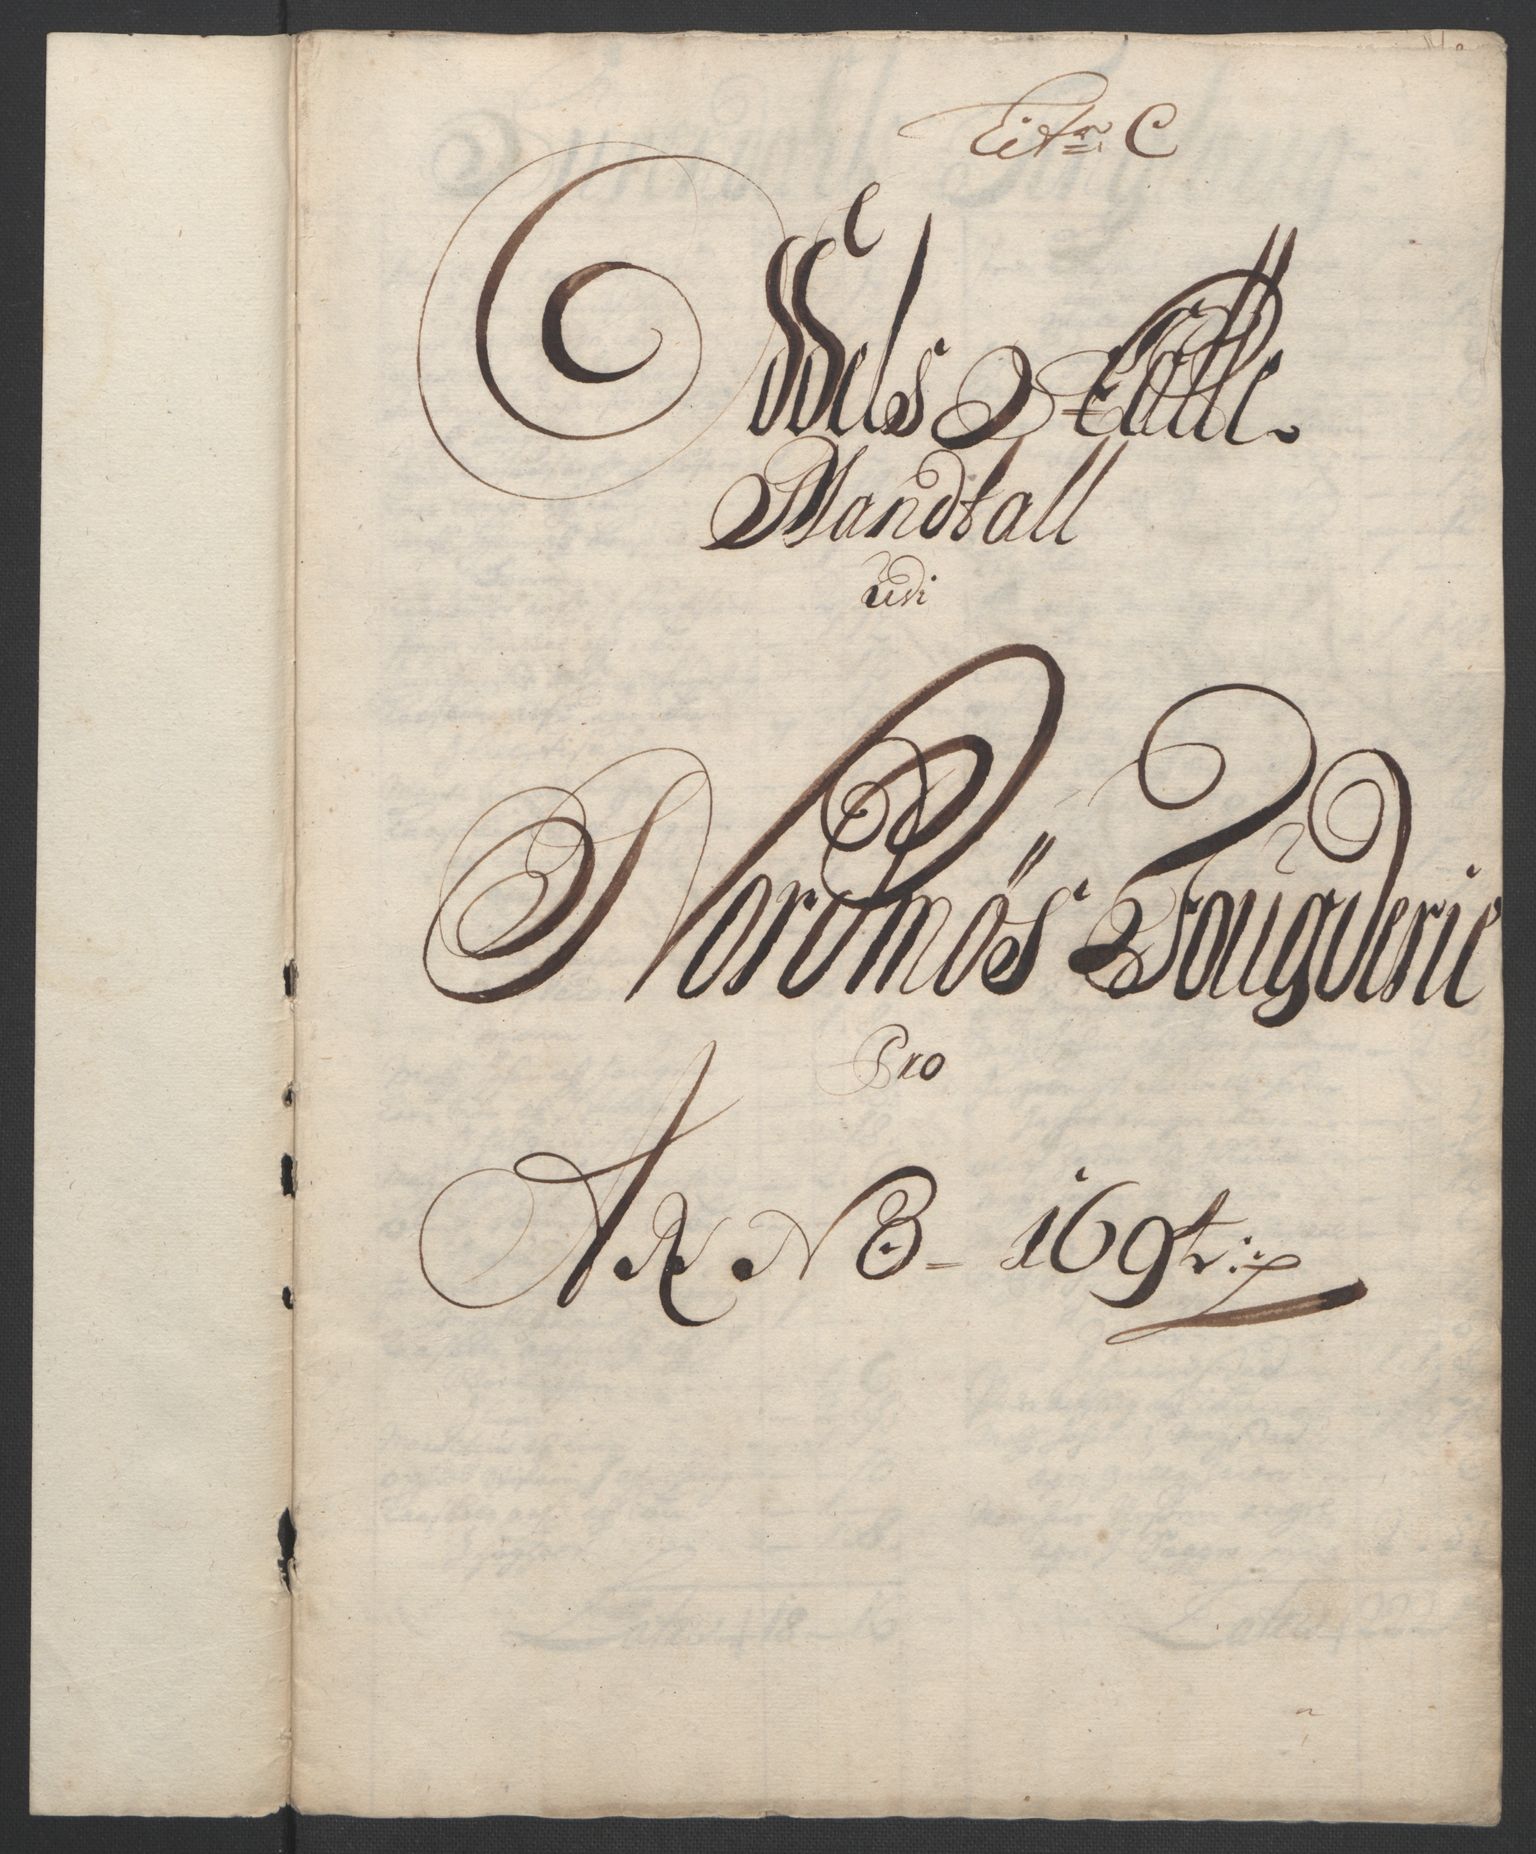 Litr: C
Oddels Skatte
Mandtall
udi
Nordmös Fougderie
Pro
ANNO 169